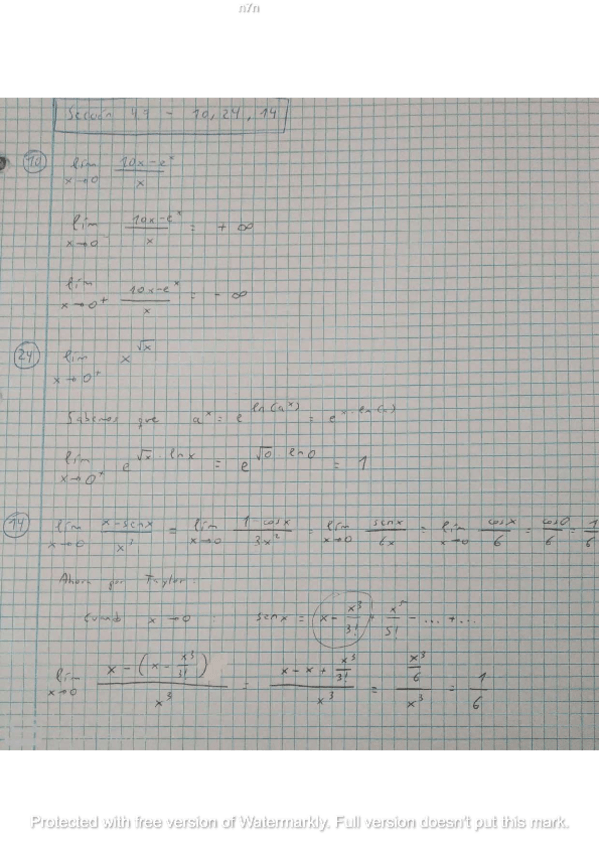 n7n
Sección 4.7 - 10, 24, 14
10 lim x→0 (10x-e^x)/x
lim x→0^- (10x-e^x)/x = +∞
lim x→0^+ (10x-e^x)/x = -∞
24 lim x→0^+ x^√x
Sabemos que a^x = e^ln(a^x) = e^x·ln(a)
lim x→0^+ e^√x · ln x = e^√0 · ln 0 = 1
14 lim x→0 (x-senx)/x^3 = lim x→0 (1-cosx)/3x^2 = lim x→0 senx/6x = lim x→0 cosx/6 = cos0/6 = 1/6
Ahora por Taylor:
Cuando x→0 : senx = x - x^3/3! + x^5/5! - ... + ...
lim x→0 (x-(x-x^3/3!))/x^3 = (x-x+x^3/3!)/x^3 = (x^3/6)/x^3 = 1/6
Protected with free version of Watermarkly. Full version doesn't put this mark.